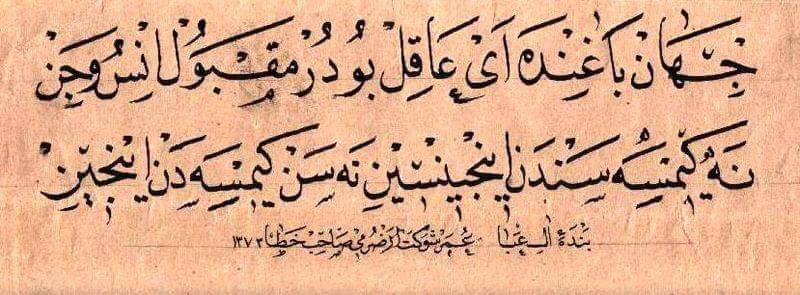 جهان باغنده ای عاقل بودر مقبول انس و جن
نه كیمسه سندن اینجینسین نه سن كیمسه دن اینجین
بندهٔ ال عبا عمر شوكت ارضرومی صاحب خطا ١٣٧٣